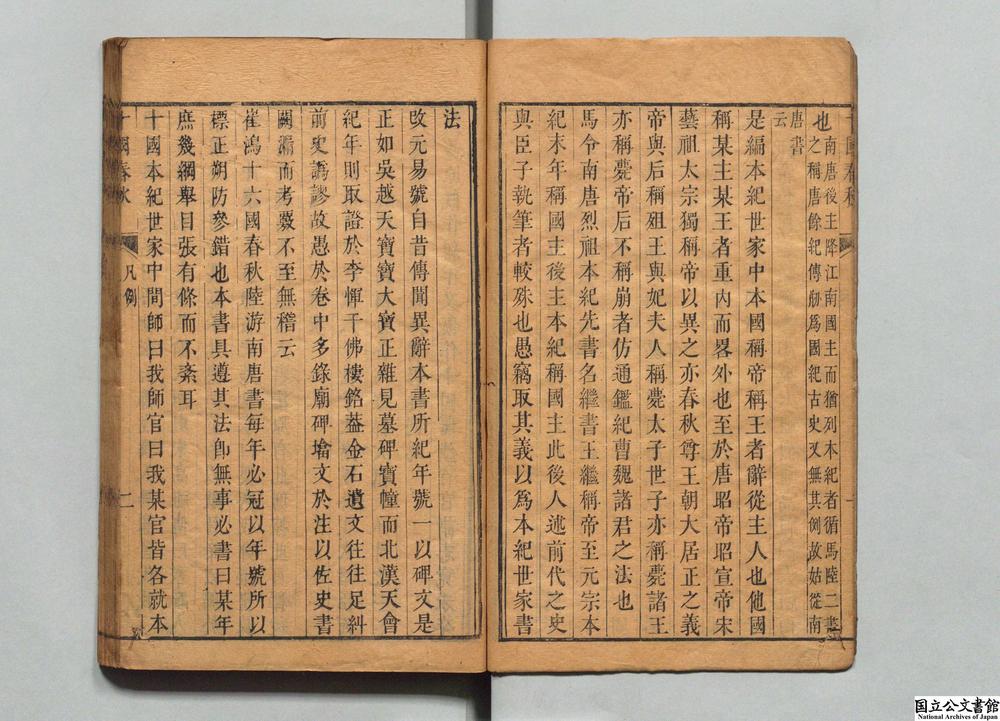 十國春秋
也南唐後主降江南國主而猶列本紀者循馬陸二書
之稱唐餘紀傳胏爲國紀古史又無其例故姑從南
唐書
云
是編本紀世家中本國稱帝稱王者辭從主人也他國
稱某主某王者重内而畧外也至於唐昭帝昭宣帝宋
藝祖太宗獨稱帝以異之亦春秋尊王朝大居正之義
帝與后稱殂王與妃夫人稱薨太子世子亦稱薨諸王
亦稱薨帝后不稱崩者仿通鑑紀曹魏諸君之法也
馬令南唐烈祖本紀先書名繼書王繼稱帝至元宗本
紀末年稱國主後主本紀稱國主此後人述前代之史
與臣子執筆者較殊也愚竊取其義以爲本紀世家書
法
改元易號自昔傳聞異辭本書所紀年號一以碑文是
正如吳越天寶寶大寶正雜見墓碑寶幢而北漢天會
紀年則取證於李惲千佛樓銘葢金石遺文往往足糾
前史譌謬故愚於卷中多錄廟碑墖文於注以佐史書
闕漏而考覈不至無稽云
崔鴻十六國春秋陸游南唐書每年必冠以年號所以
標正朔防參錯也本書具遵其法卽無事必書曰某年
庶幾綱舉目張有條而不紊耳
十國本紀世家中間師曰我師官曰我某官皆各就本
十國春秋
凡例
二
国立公文書館
National Archives of Japan